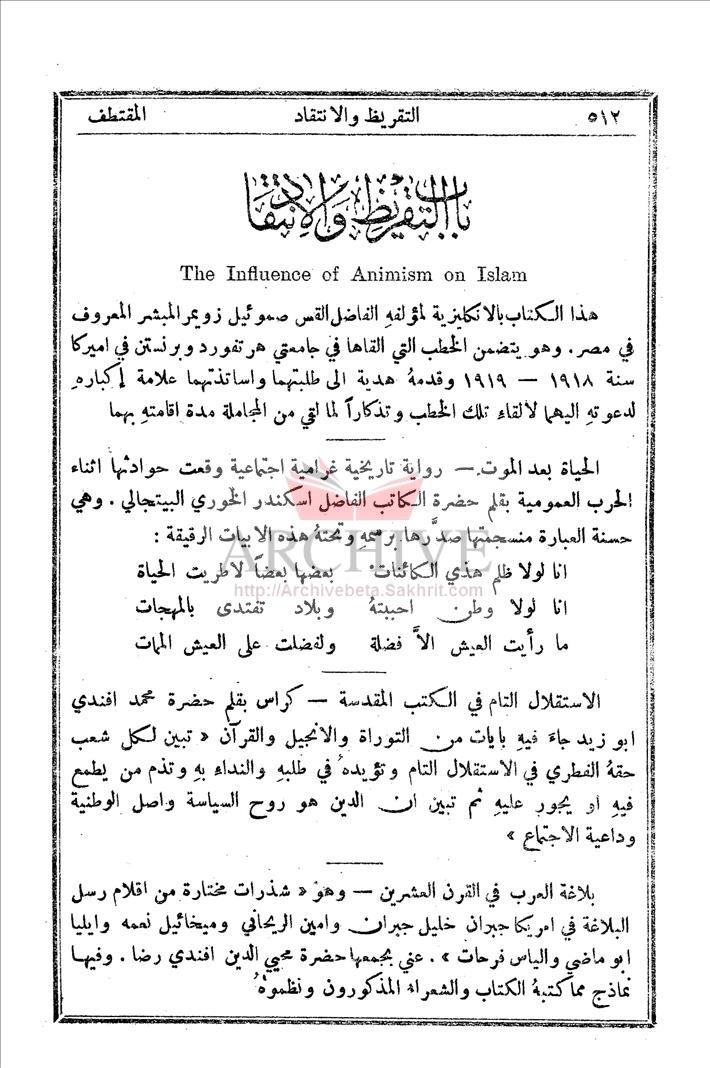 ٥١٢ التقريظ والانتقاد المقتطف
باب التقريظ والانتقاد
The Influence of Animism on Islam
هذا الكتاب بالانكليزية لمؤلفهِ الفاضل القس صموئيل زويمر المبشر المعروف
في مصر. وهو يتضمن الخطب التي القاها في جامعتي هرتفورد وبرنستن في اميركا
سنة ١٩١٨ — ١٩١٩ وقدمهُ هدية الى طلبتهما واساتذتهما علامة إكبارهِ
لدعوتهِ اليهما لالقاء تلك الخطب وتذكاراً لما لقي من المجاملة مدة اقامتهِ بهما
الحياة بعد الموت — رواية تاريخية غرامية اجتماعية وقعت حوادثها اثناء
الحرب العمومية بقلم حضرة الكاتب الفاضل اسكندر الخوري البيتجالي . وهي
حسنة العبارة منسجمتها صدَّرها برسمه وتحتهُ هذه الابيات الرقيقة :
انا لولا ظلم هذي الكائنات بعضها بعضاً لاطريت الحياة
انا لولا وطن احببتهُ وبلاد تفتدى بالمهجات
ما رأيت العيش الاَّ فضلة ولفضلت على العيش الممات
ARCHIVE
http://Archivebeta.Sakhrit.com
الاستقلال التام في الكتب المقدسة — كراس بقلم حضرة محمد افندي
ابو زيد جاءَ فيهِ بايات من التوراة والانجيل والقرآن « تبين لكل شعب
حقهُ الفطري في الاستقلال التام وتؤيدهُ في طلبهِ والنداء بهِ وتذم من يطمع
فيهِ او يجور عليهِ ثم تبين ان الدين هو روح السياسة واصل الوطنية
وداعية الاجتماع »
بلاغة العرب في القرن العشرين — وهو « شذرات مختارة من اقلام رسل
البلاغة في امريكا جبران خليل جبران وامين الريحاني وميخائيل نعمه وايليا
ابو ماضي والياس فرحات » . عني بجمعها حضرة محيي الدين افندي رضا . وفيها
نماذج مما كتبهُ الكتاب والشعراء المذكورون ونظموهُ